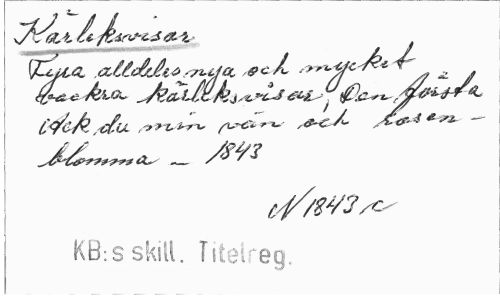 Kärleksvisor
Fyra alldeles nya och mycket
vackra kärleksvisor, Den första
Ack du min vän och rosen-
blomma — 1843
N 1843 c
KB:s skill. Titelreg.